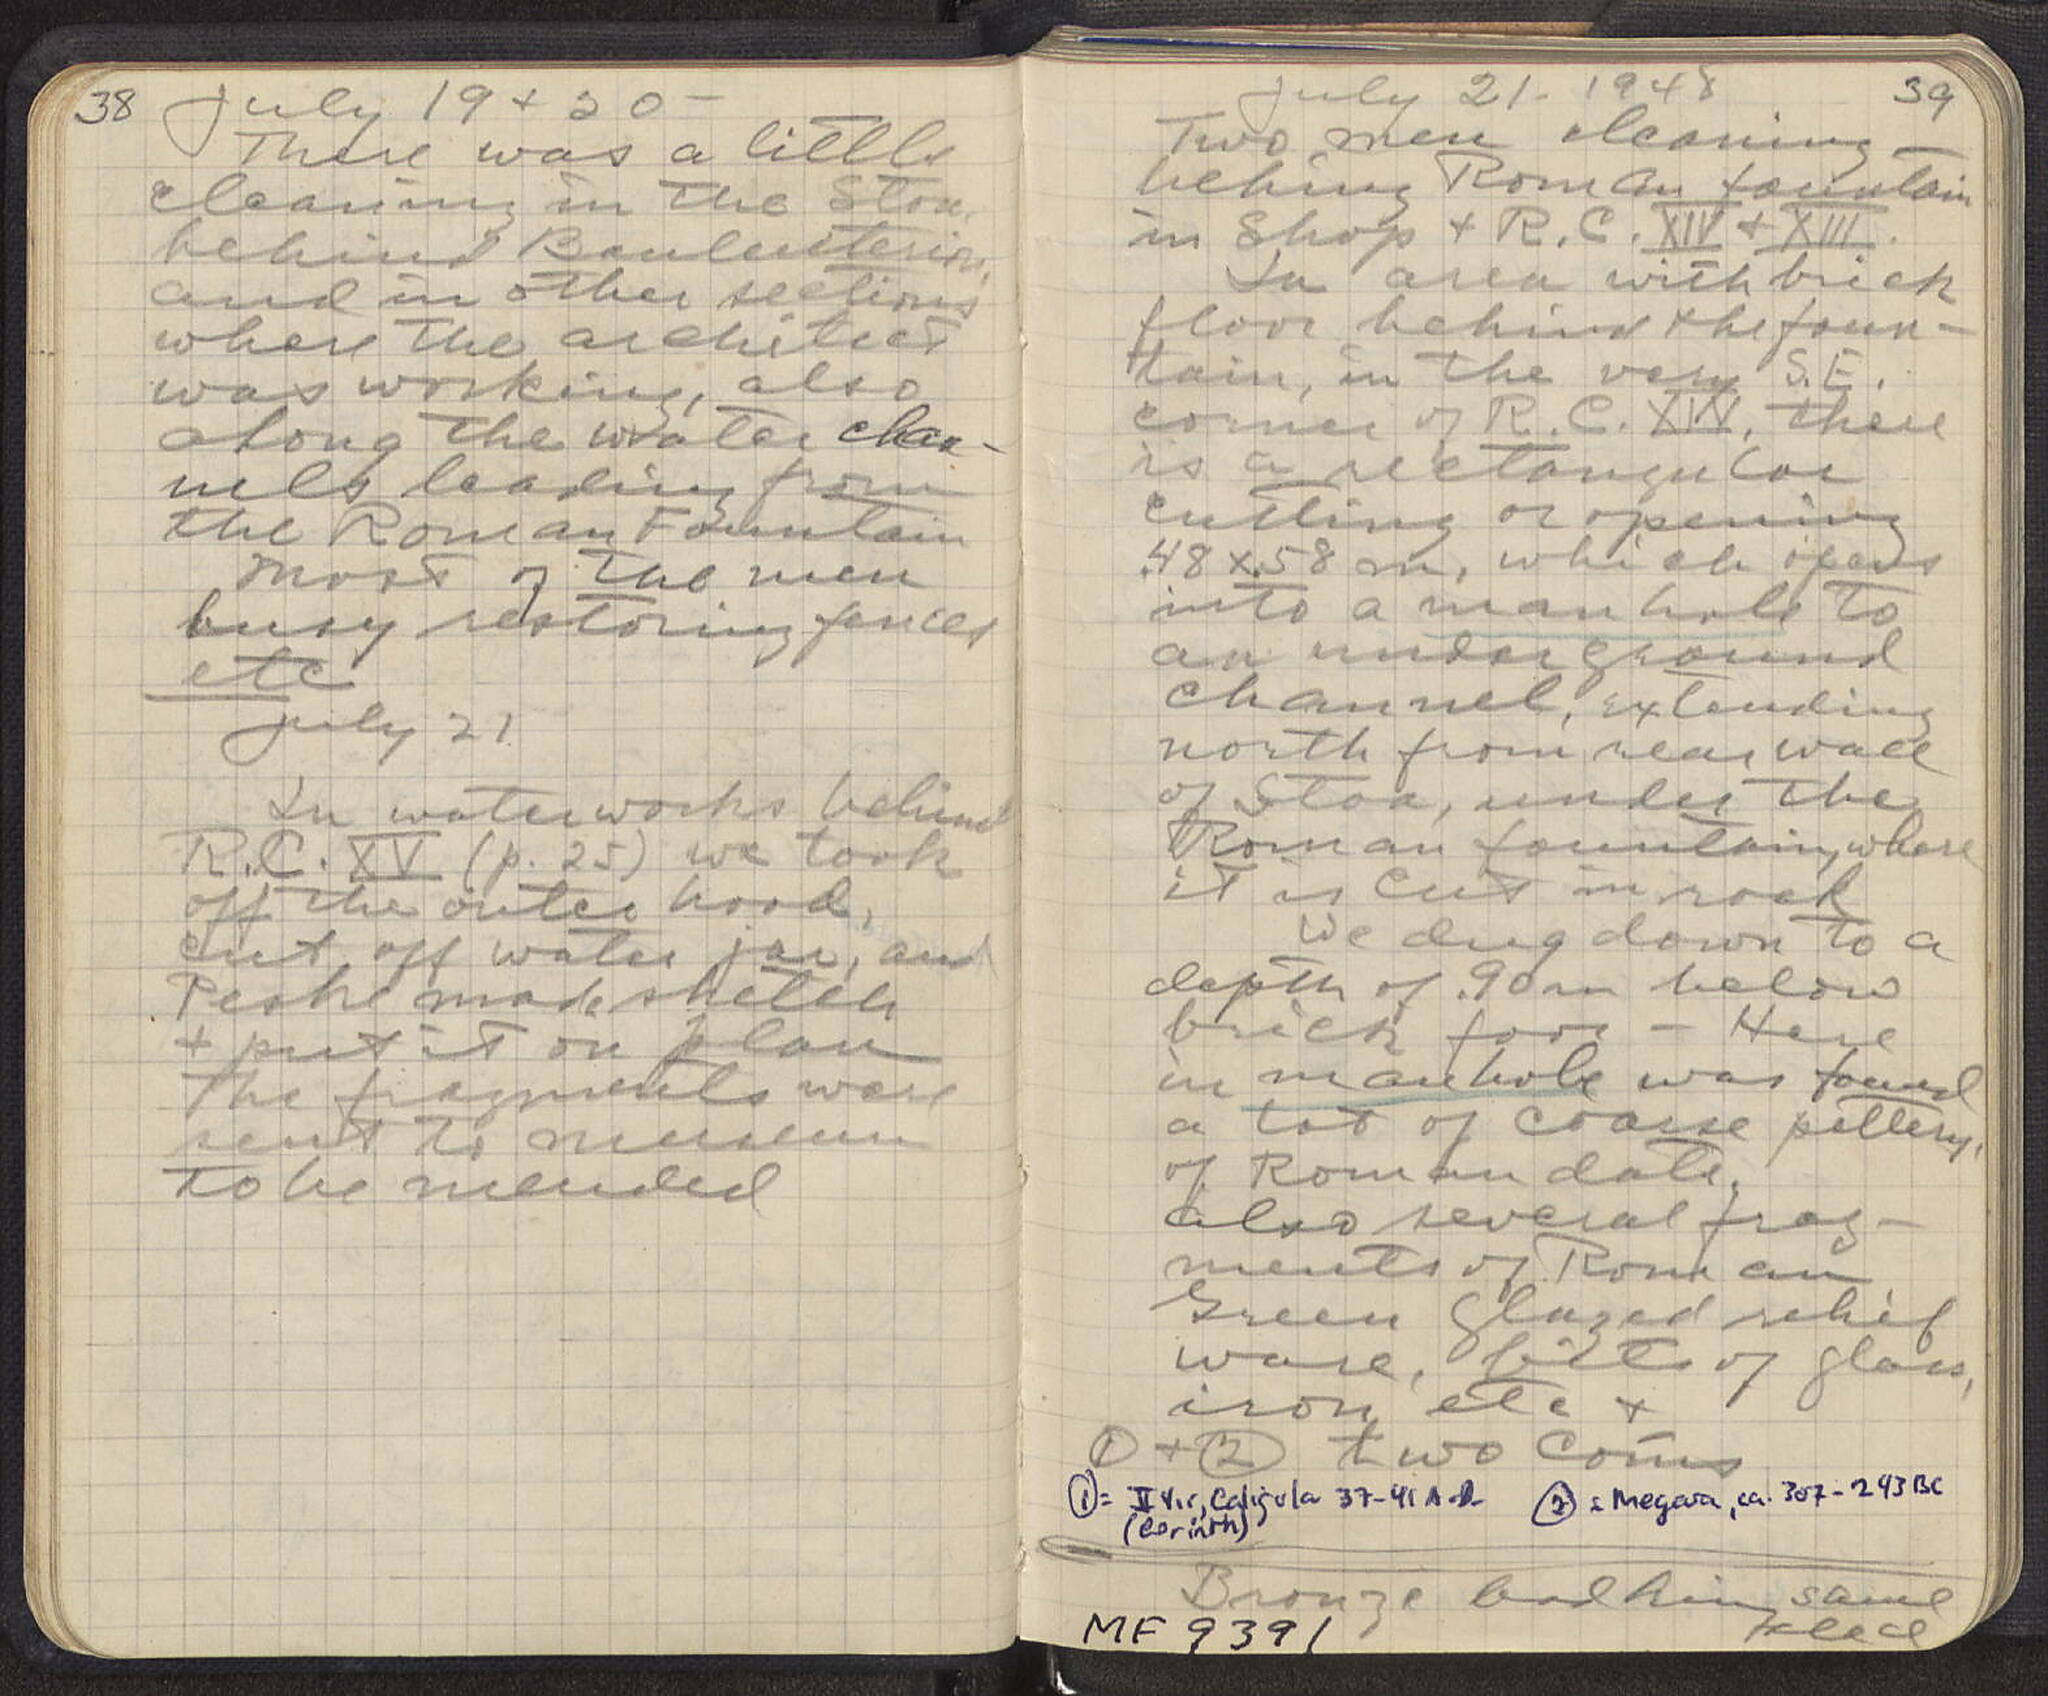 38
July 19 + 20 -
There was a little
cleaning in the Stoa
behind Bouleuterion,
and in other sections
where the architect
was working, also
along the water chan-
nels leading from
the Roman Fountain
Most of the men
busy restoring fences
etc
July 21
In waterworks behind
R.C. XV (p. 25) we took
off the outer hood,
cut off water jar, and
Peske made sketch
+ put it on plan
The fragments were
sent to museum
to be mended
July 21 - 1948
39
Two men cleaning
behing Roman fountain
in Shop + R.C. XIV + XIII.
In area with brick
floor behind the foun-
tain, in the very S.E.
corner of R.C. XIV, there
is a rectangular
cutting or opening
.48 x .58 m, which opens
into a manhole to
an underground
channel, extending
north from rear wall
of Stoa, under the
Roman fountain, where
it is cut in rock
We dug down to a
depth of .90 m below
brick foor - Here
in manhole was found
a lot of coarse pottery,
of Roman date,
also several frag-
ments of Roman
Green glazed relief
ware, bits of glass,
iron etc +
① + ② two coins
① = II Vir, Caligula 37-41 A.D.
(Corinth)
② = Megara, ca. 307-243 BC
Bronze same
place
MF 9391